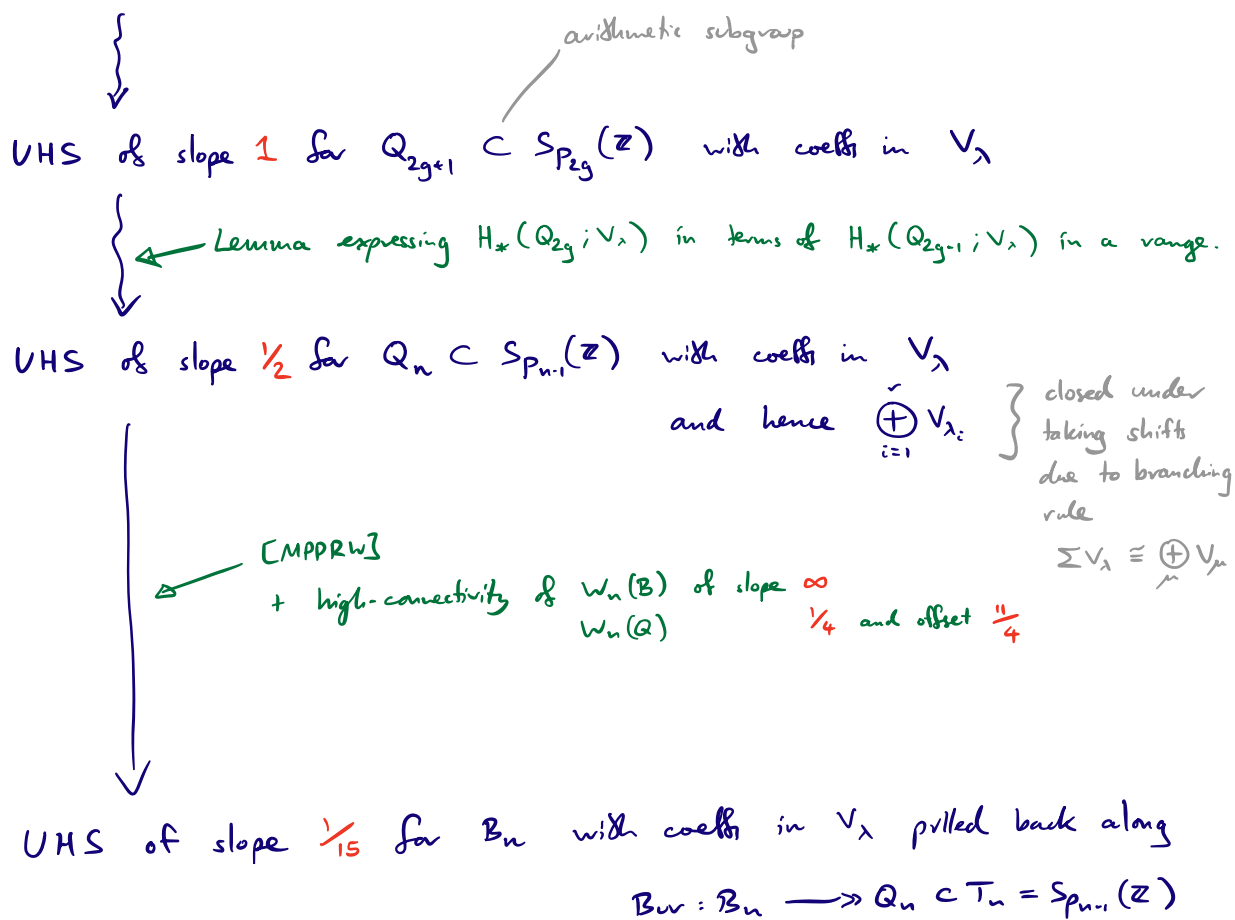 arithmetic subgroup
UHS of slope 1 for Q_{2g+1} ⊂ Sp_{2g}(ℤ) with coeffs in V_λ
Lemma expressing H_*(Q_{2g}; V_λ) in terms of H_*(Q_{2g-1}; V_λ) in a range.
UHS of slope 1/2 for Q_n ⊂ Sp_{n-1}(ℤ) with coeffs in V_λ
and hence ⊕_{i=1}^{r} V_{λ_i}
closed under
taking shifts
due to branching
rule
ΣV_λ ≅ ⊕_μ V_μ
[MPPRW]
+ high-connectivity of W_n(B) of slope ∞
W_n(Q) 1/4 and offset 11/4
UHS of slope 1/15 for B_n with coeffs in V_λ pulled back along
Bur : B_n ↠ Q_n ⊂ T_n = Sp_{n-1}(ℤ)